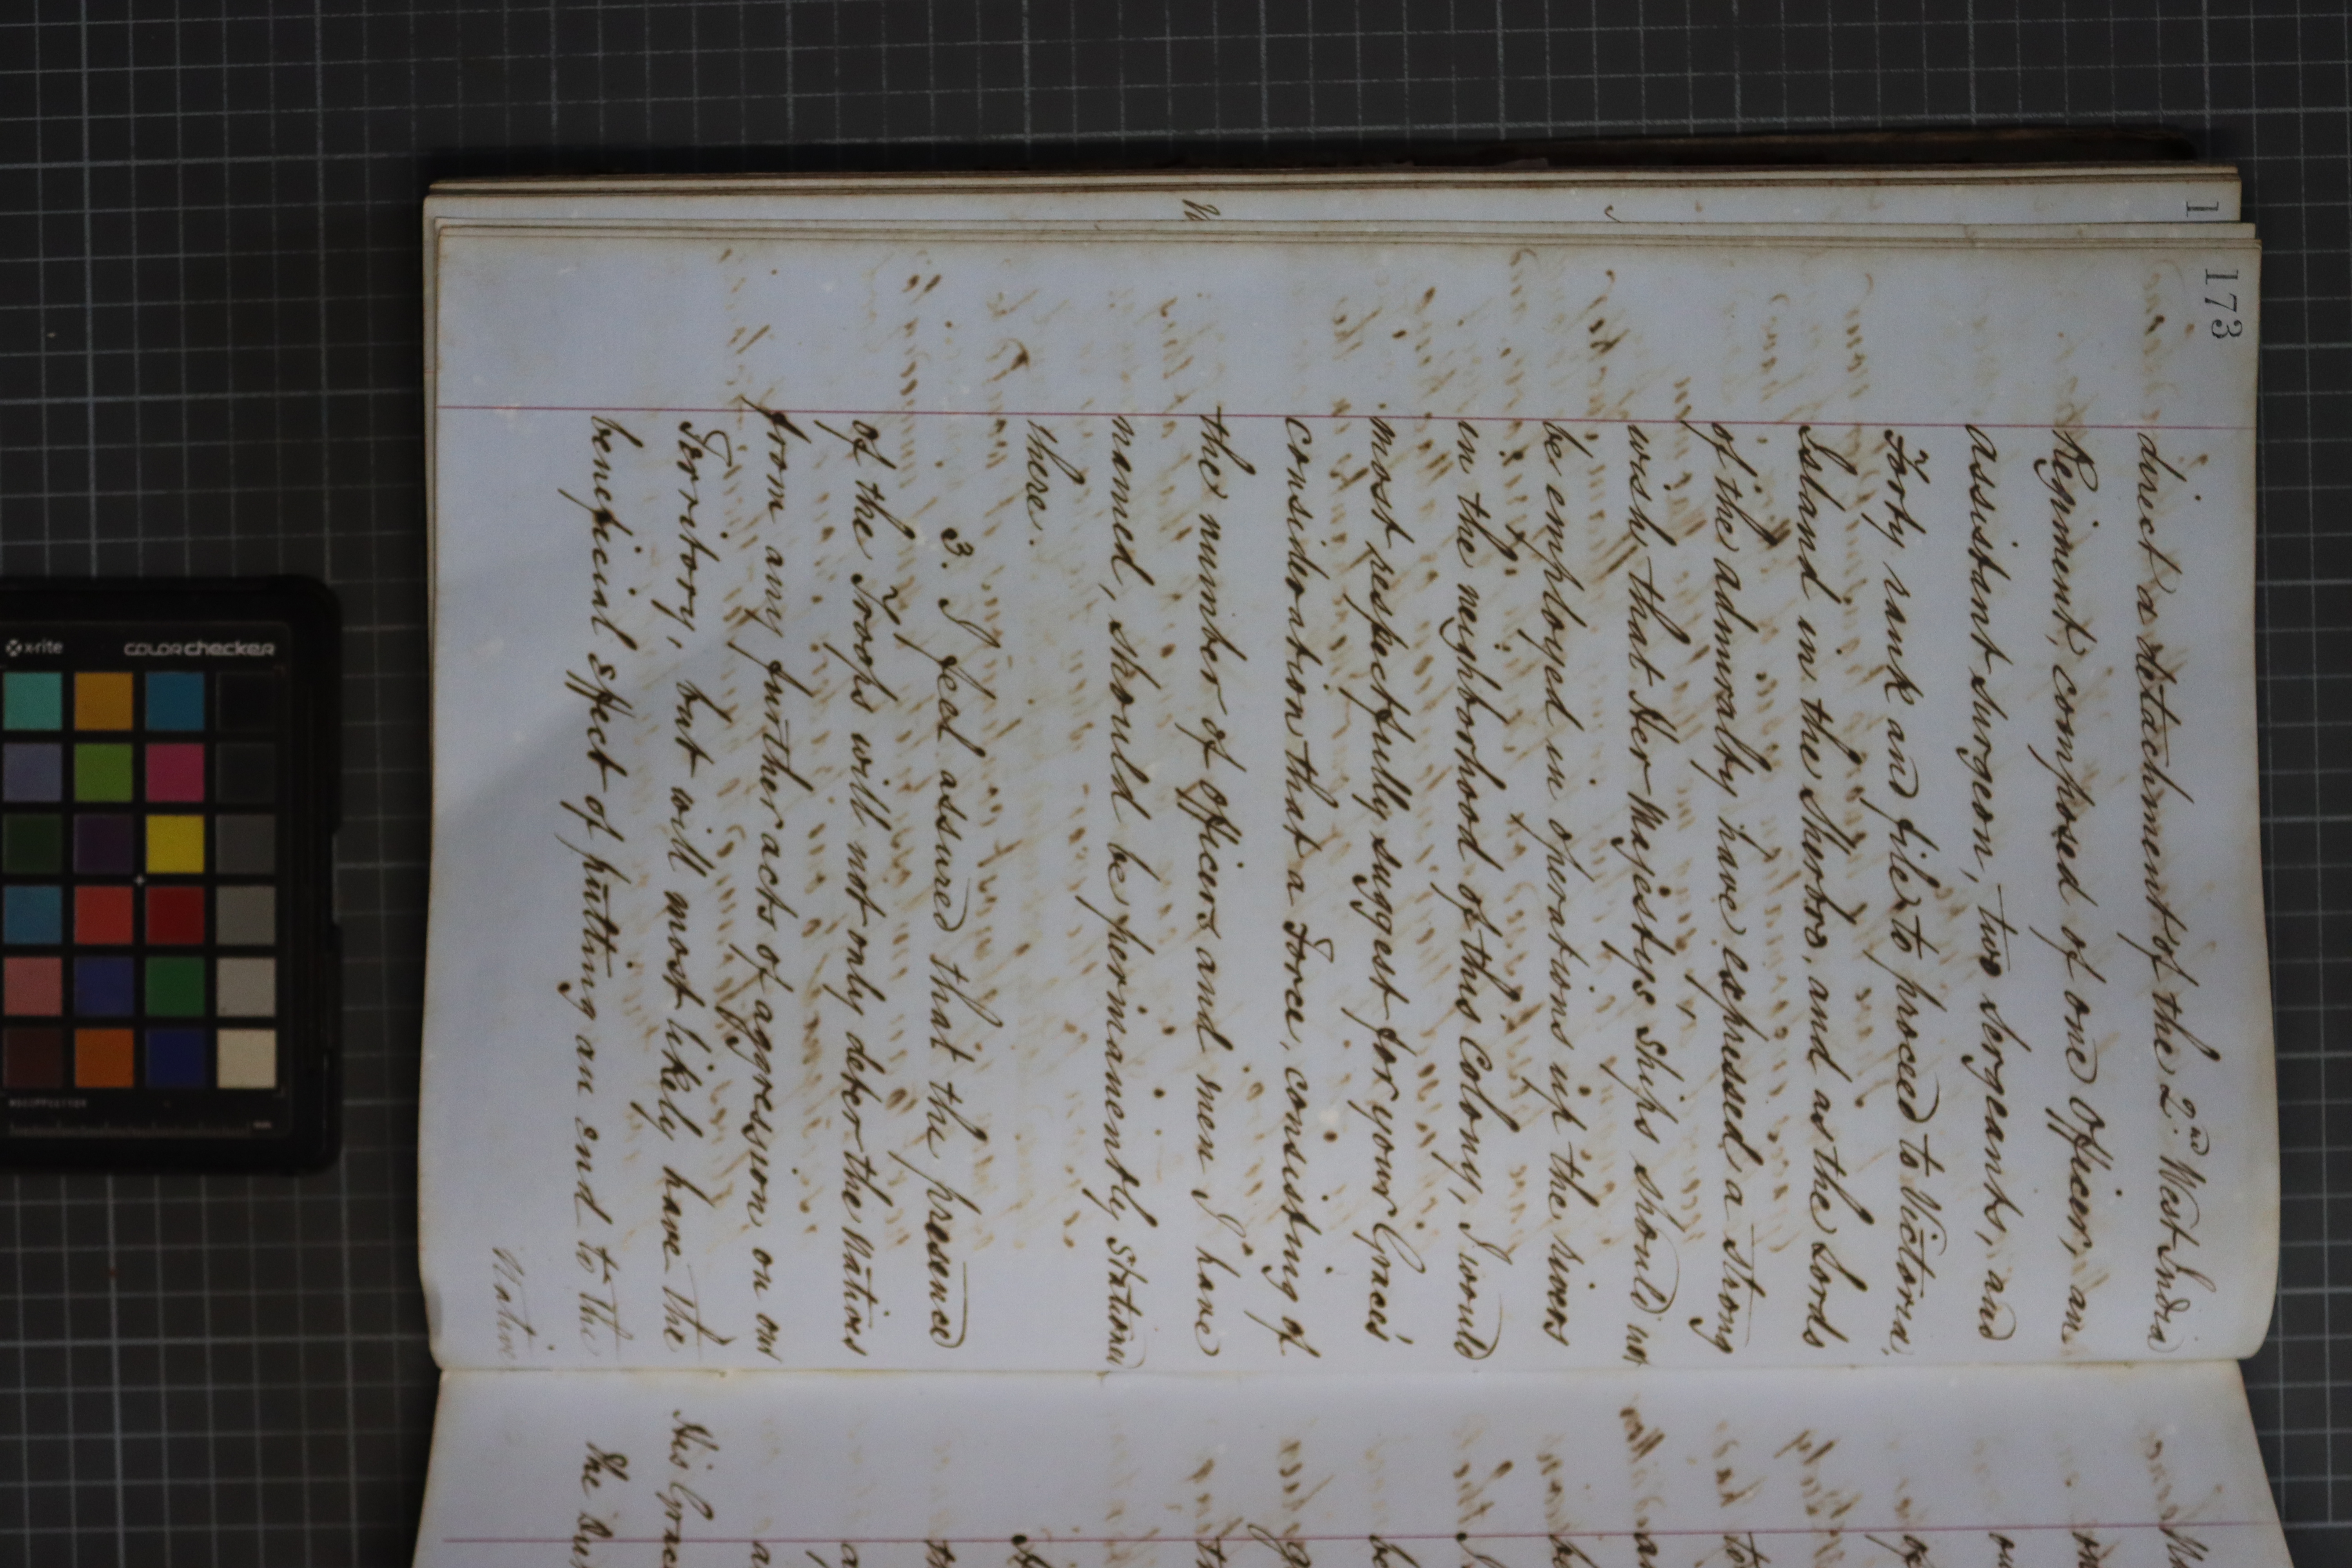 173
direct a detachment of the 2nd West India
Regiment, composed of one Officer, an
assistant surgeon, two sergeants, and
Forty rank and file to proceed to Victoria,
Island in the Sherbro, and as the Lords
of the admiralty have expressed a strong
wish, that Her Majesty's Ships should not
be employed in operations up the rivers
in the neighborhood of this Colony, I would
most respectfully suggest for your Grace's
consideration that a Force, consisting of
the number of Officers and men I have
named, should be permanently stationed
there.
3. I feel assured that the presence
of the Troops will not only deter the natives
from any further acts of aggression on our
Territory, but will most likely have the
beneficial effect of putting an end to the
Native
His Grace
The
x-rite colorchecker